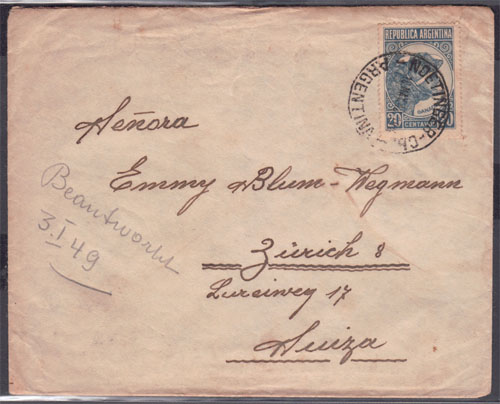 REPUBLICA ARGENTINA
20
CENTAVOS
ARGENTINA
Señora
Emmy Blum-Wegmann
Zürich 8
Lureiweg 17
Suiza
Beantwortet
3.I.49